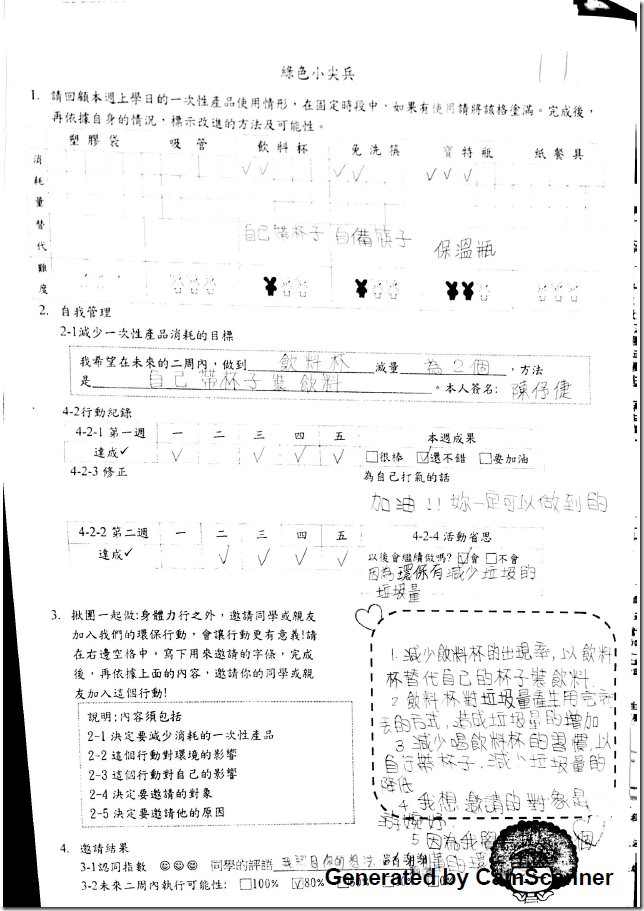 綠色小尖兵
11
1. 請回顧本週上學日的一次性產品使用情形，在固定時段中，如果有使用請將該格塗滿。完成後，
再依據自身的情況，標示改進的方法及可能性。
塑膠袋 吸管 飲料杯 免洗筷 寶特瓶 紙餐具
消耗量
替代 自己帶杯子 自備筷子 保溫瓶
難度
2. 自我管理
2-1減少一次性產品消耗的目標
我希望在未來的二周內，做到 飲料杯 減量 為2個，方法
是 自己帶杯子裝飲料。本人簽名: 陳伃倢
4-2行動紀錄
4-2-1 第一週 一 二 三 四 五 本週成果
達成✓ ✓ ✓ ✓ ✓ □很棒 ☑還不錯 □要加油
4-2-3 修正 為自己打氣的話
加油!!妳一定可以做到的
4-2-2 第二週 一 二 三 四 五 4-2-4 活動省思
達成✓ ✓ ✓ ✓ ✓ 以後會繼續做嗎? ☑會 □不會
因為環保有減少垃圾的
垃圾量
3. 揪團一起做:身體力行之外，邀請同學或親友
加入我們的環保行動，會讓行動更有意義!請
在右邊空格中，寫下用來邀請的字條，完成
後，再依據上面的內容，邀請你的同學或親
友加入這個行動!
說明:內容須包括
2-1 決定要減少消耗的一次性產品
2-2 這個行動對環境的影響
2-3 這個行動對自己的影響
2-4 決定要邀請的對象
2-5 決定要邀請他的原因
1.減少飲料杯的出現率，以飲料
杯替代自己的杯子裝飲料.
2.飲料杯對垃圾量產生用完
丟的方式，造成垃圾量的增加
3.減少喝飲料杯的習慣，以
自行帶杯子，減少垃圾量的
降低
4.我想邀請的對象是
5.因為我
4. 邀請結果
3-1認同指數 ☺☺☺ 同學的評語 我認同你的想法
3-2未來二周內執行可能性: □100% ☑80%
Generated by CamScanner